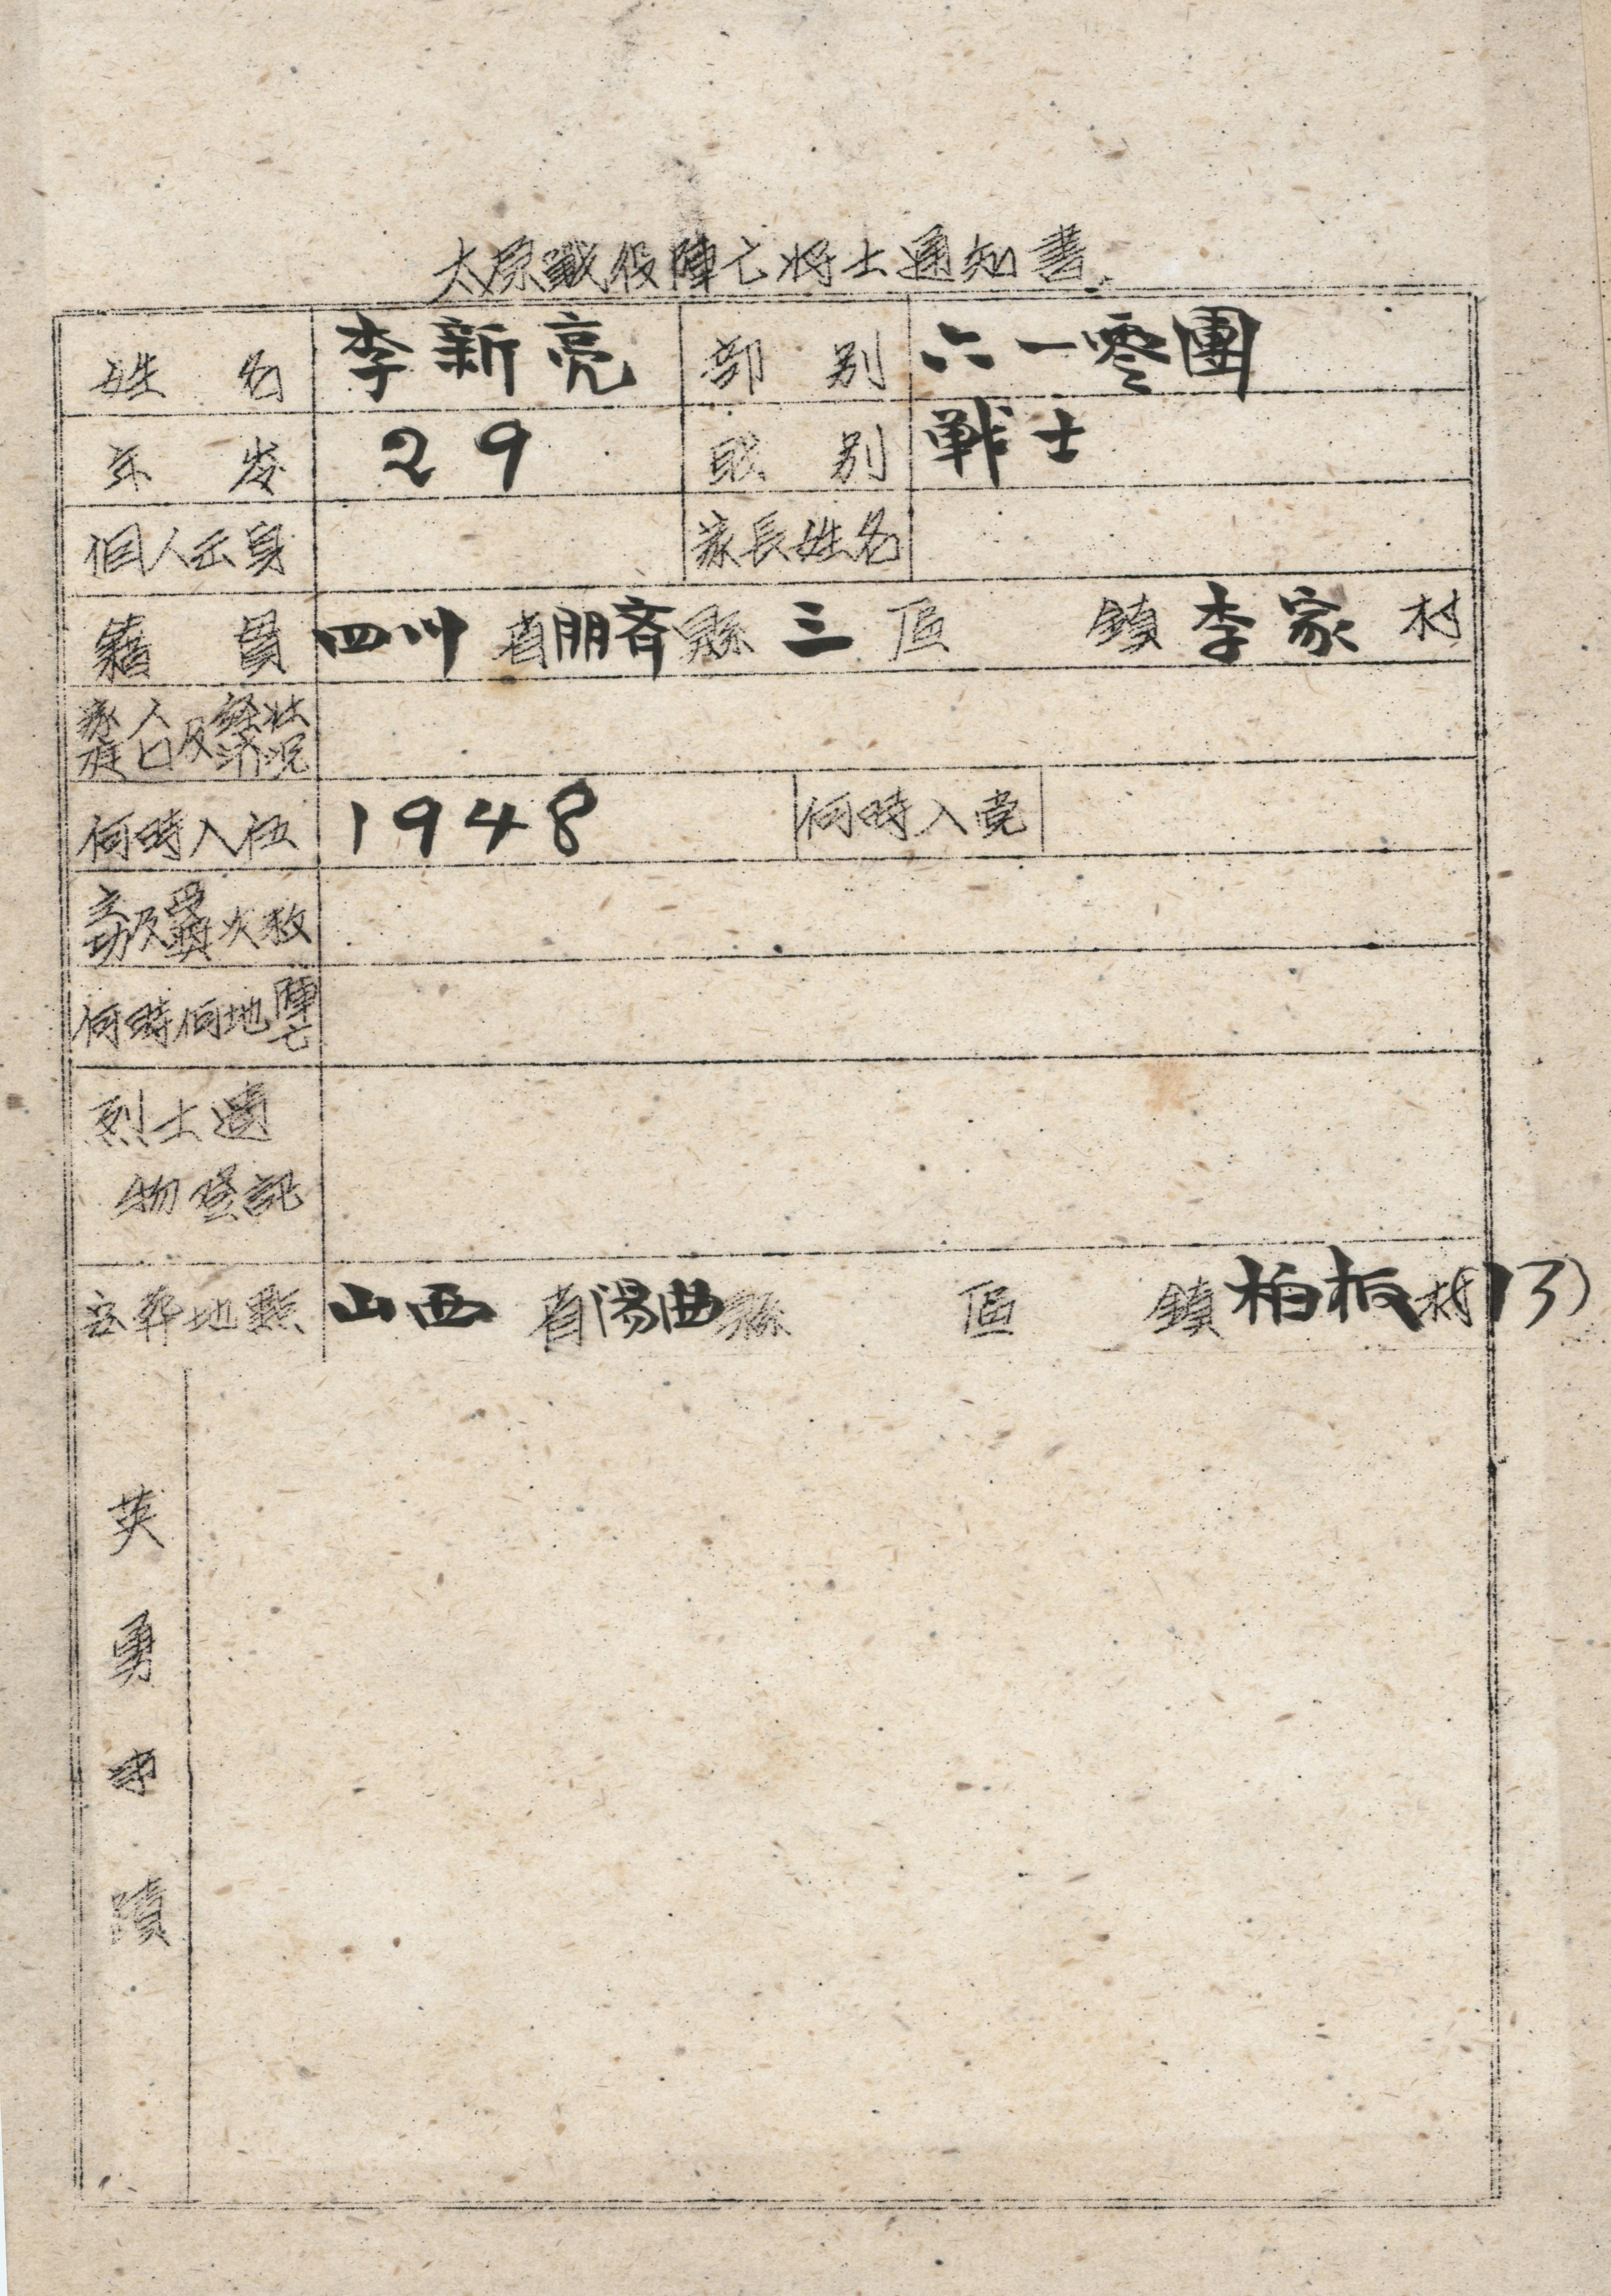 太原戰役陣亡將士通知書
姓 名 李新亮 部 别 六一零團
年 歲 29 職 别 戦士
個人出身 家長姓名
籍 貫 四川省朋斉縣三區 鎮李家村
家庭人口及經济状况
何時入伍 1948 何時入党
立功及受獎次数
何時何地陣亡
烈士遺
物登記
安葬地點 山西省陽曲縣 區 鎮柏板村(13)
英勇事蹟